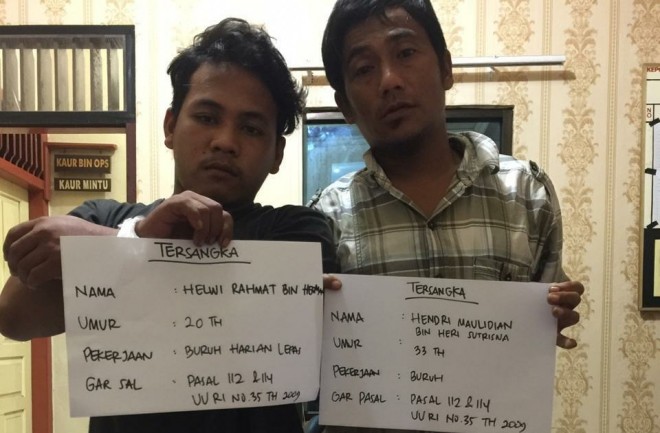 KAUR BIN OPS
KAUR MINTU
TERSANGKA
NAMA : HELWI RAHMAT BIN
UMUR : 20 TH
PEKERJAAN : BURUH HARIAN LEPAS
GAR SAL : PASAL 112 & 114
UU RI NO. 35 TH 2009
TERSANGKA
NAMA : HENDRI MAULIDIAN
BIN HERI SUTRISNA
UMUR : 33 TH
PEKERJAAN : BURUH
GAR PASAL : PASAL 112 & 114
UU RI NO. 35 TH 2009